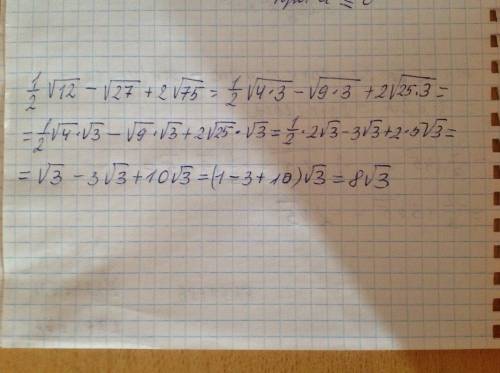 1/2 √12 − √27 + 2√75 = 1/2 √4·3 − √9·3 + 2√25·3 =
= 1/2 √4·√3 − √9·√3 + 2√25·√3 = 1/2·2√3 − 3√3 + 2·5√3 =
= √3 − 3√3 + 10√3 = (1−3+10)√3 = 8√3